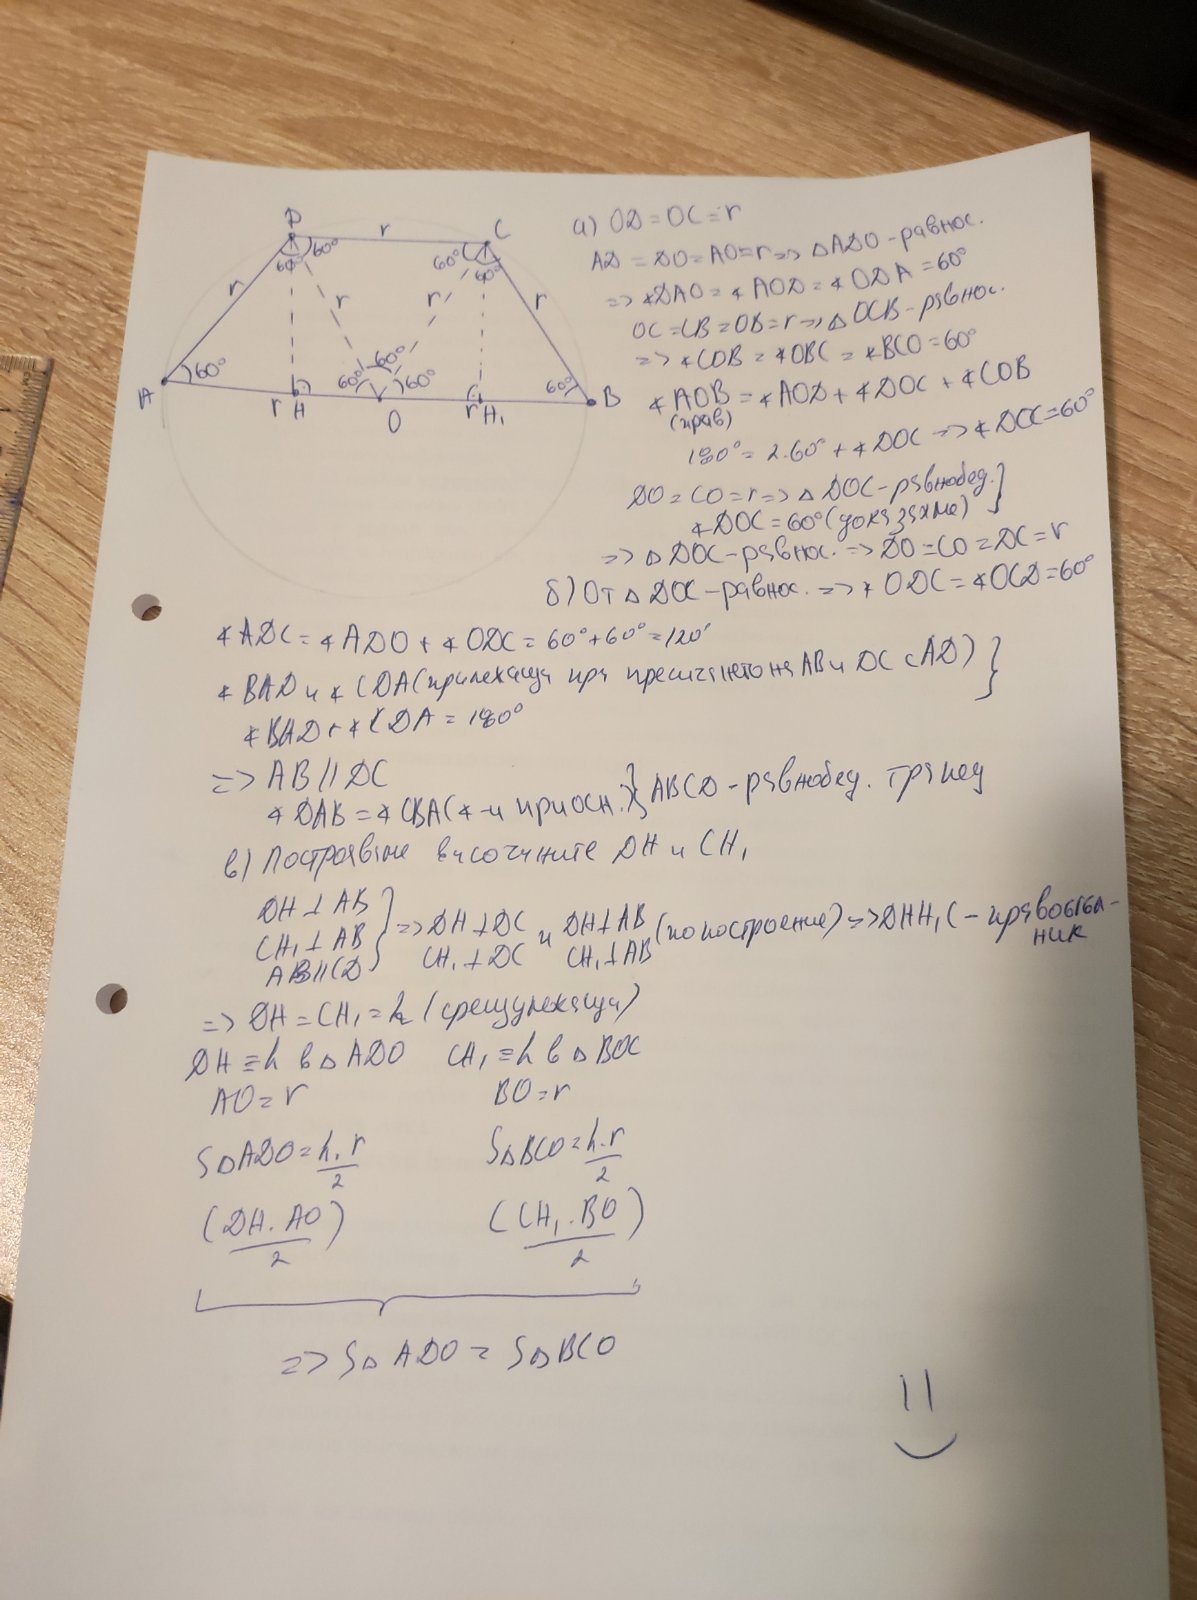 D r C
60° 60° 60° 60°
r r r r
60° 60° 60° 60° 60°
A r H O r H₁ B
а) OD = OC = r
AD = DO = AO = r => △ADO - равнос.
=> ∢DAO = ∢AOD = ∢ODA = 60°
OC = CB = OB = r => △OCB - равнос.
=> ∢COB = ∢OBC = ∢BCO = 60°
∢AOB = ∢AOD + ∢DOC + ∢COB
(прав)
180° = 2.60° + ∢DOC => ∢DOC = 60°
DO = CO = r => △DOC - равнобед. }
∢DOC = 60° (доказахме)
=> △DOC - равнос. => DO = CO = DC = r
б) От △DOC - равнос. => ∢ODC = ∢OCD = 60°
∢ADC = ∢ADO + ∢ODC = 60° + 60° = 120°
∢BAD и ∢CDA (прилежащи при пресичането на AB и DC с AD) }
∢BAD + ∢CDA = 180°
=> AB // DC
∢DAB = ∢CBA (∢-и при осн.) } ABCD - равнобед. трапец
в) Построяваме височините DH и CH₁
DH ⊥ AB
CH₁ ⊥ AB } => DH ⊥ DC и DH ⊥ AB (по построение) => DHH₁C - правоъгъл-
AB // CD CH₁ ⊥ DC CH₁ ⊥ AB ник
=> DH = CH₁ = h (срещулежащи)
DH ≡ h в △ADO CH₁ ≡ h в △BOC
AO = r BO = r
S△ADO = h.r/2 S△BCO = h.r/2
(DH.AO/2) (CH₁.BO/2)
=> S△ADO = S△BCO